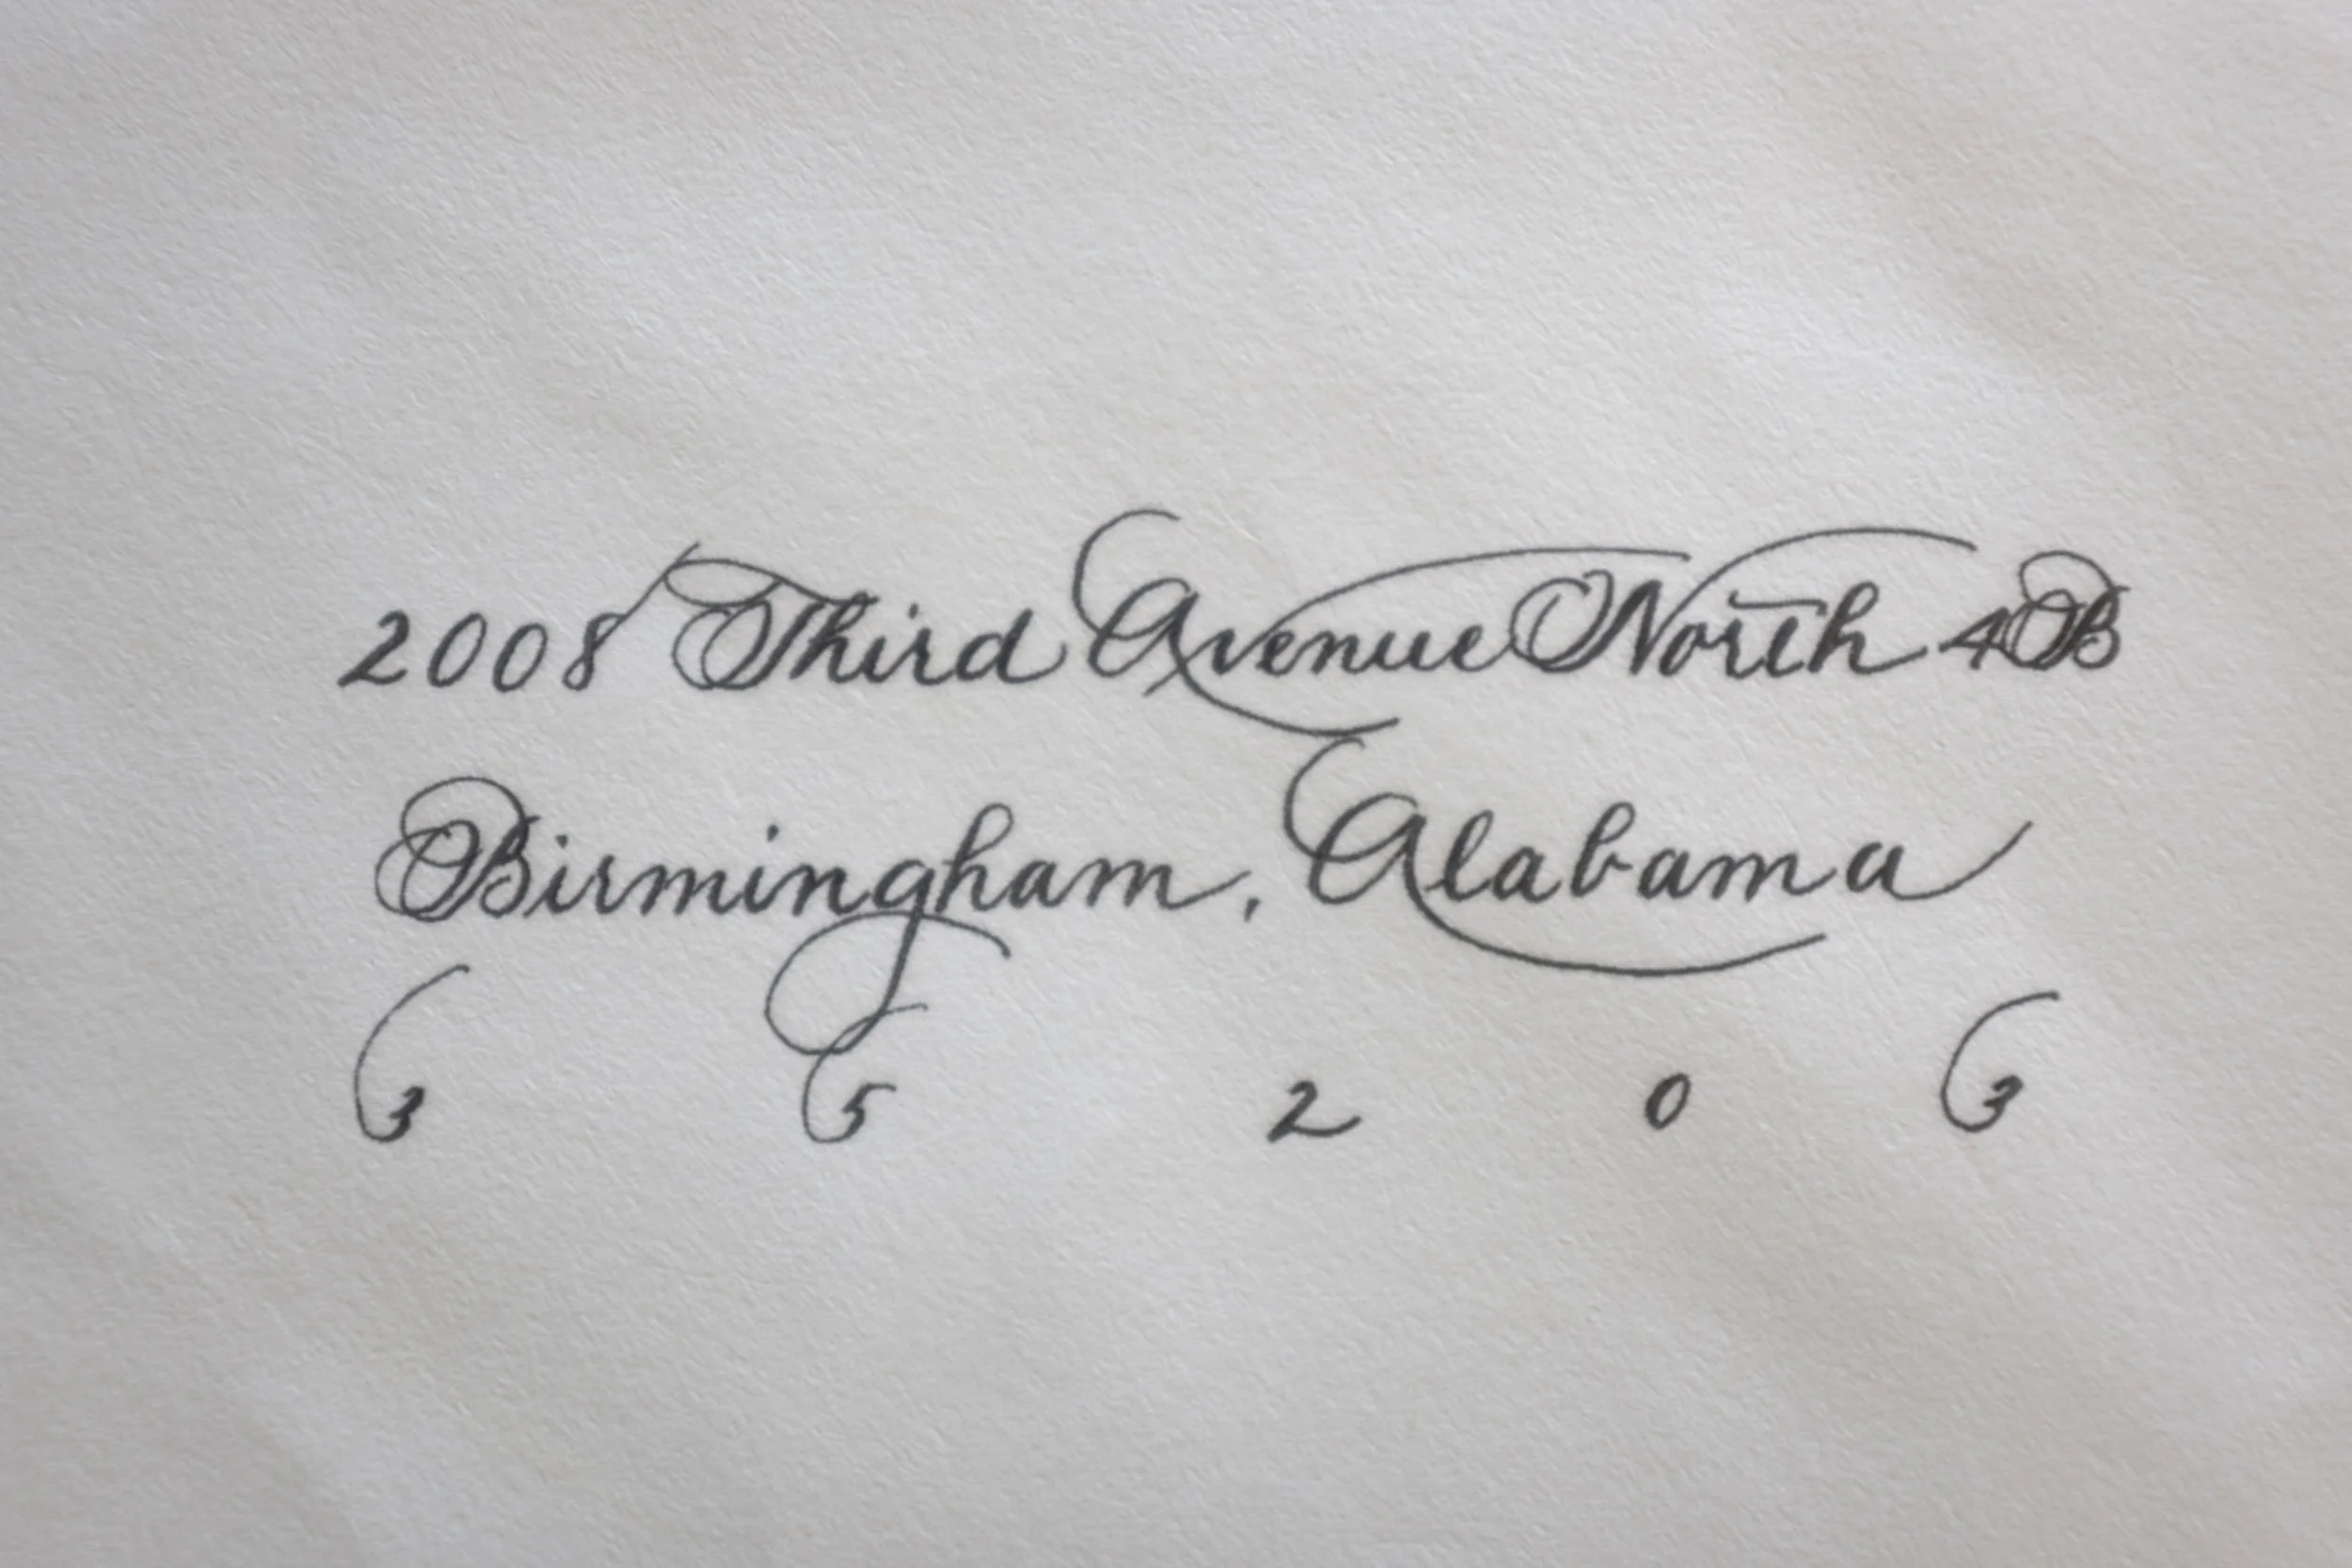 2008 Third Avenue North 4B
Birmingham, Alabama
3 5 2 0 3